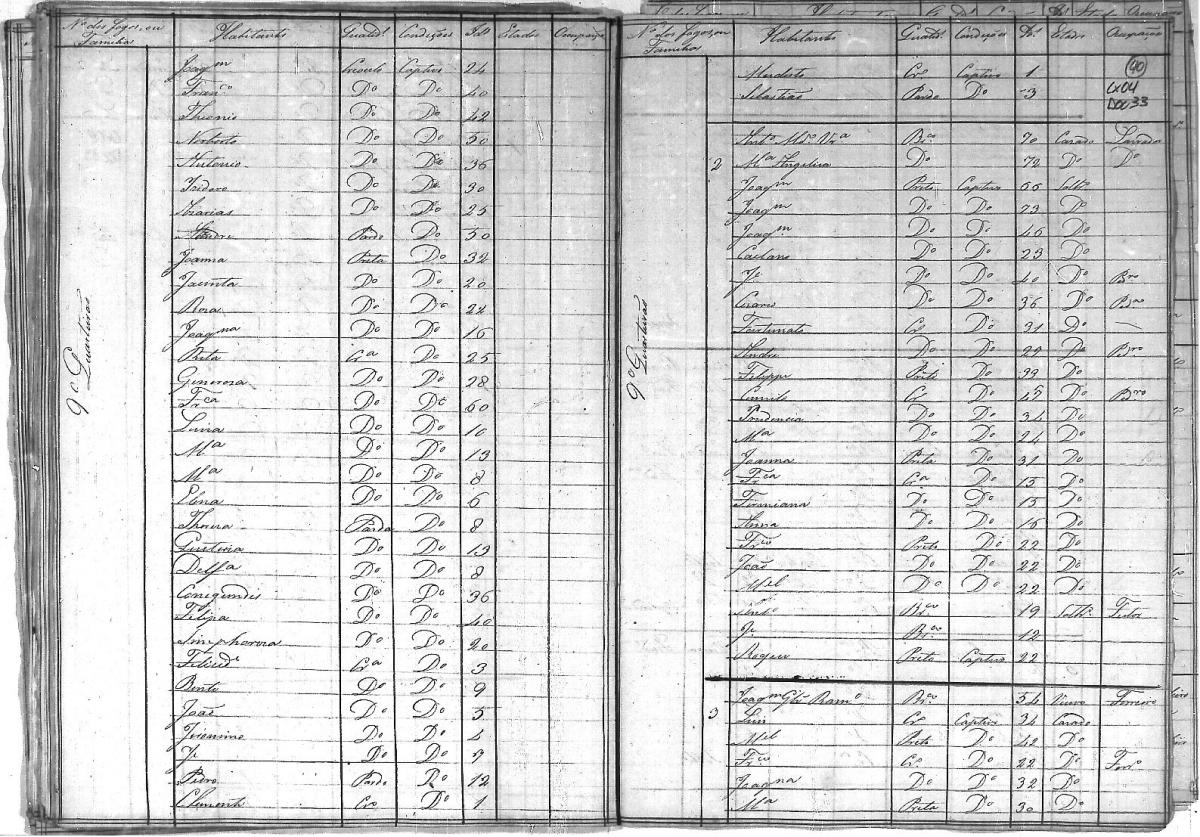 Nos dos Fogos, ou Familias Habitantes Qualids Condições Ids Estados Occupações
9º Quarteirão
Joaqm Crioulo Captivo 24
Franco Do Do 40
Do Do 42
Norberto Do Do 50
Antonio Do Do 36
Izidoro Do Do 30
Do Do 25
Pardo Do 50
Joanna Preta Do 32
Jacinta Do Do 20
Roza Do Do 22
Joaqna Do Do 16
Rita Cra Do 25
Generoza Do Do 28
Frca Do Do 60
Do Do 10
Ma Do Do 13
Ma Do Do 8
Elena Do Do 6
Parda Do 8
Do Do 13
Delfa Do Do 8
Conegundis Do Do 36
Filipa Do Do 40
Simphoroza Do Do 20
Cra Do 3
Bento Do Do 9
João Do Do 5
Jeronimo Do Do 4
Je Do Do 9
Pedro Pardo Do 12
Clemente Cro Do 1
Nos dos Fogos, ou Familias Habitantes Qualids Condições Ids Estados Occupações
40
CX04
DOC 33
9º Quarteirão
Modesto Cro Captivo 1
Sebastião Pardo Do 3
2 Anto Brco 70 Cazado Lavrador
Ma Angelica Do 72 Do Do
Joaqm Preto Captivo 66 Solto
Joaqm Do Do 73 Do
Joaqm Do Do 46 Do
Caetano Do Do 23 Do
Je Do Do 40 Do
Do Do 36 Do
Fortunato Cro Do 31 Do
Andre Do Do 29 Do
Filippe Preto Do 39 Do
Camilo Cro Do 45 Do
Prudencia Do Do 34 Do
Ma Do Do 24 Do
Joanna Preta Do 31 Do
Frca Cra Do 15 Do
Firmiana Do Do 15 Do
Anna Do Do 16 Do
Frco Preto Do 22 Do
João Do Do 22 Do
Mel Do Do 22 Do
Anto Brco 19 Solto Feitor
Je Brco 12
Roque Preto Captivo 22
3 Joaqm Ramo Brco 54 Viuvo Ferreiro
Luis Cro Captivo 34 Cazado
Mel Preto Do 42 Do
Frco Cro Do 22 Do Ferro
Joaqna Do Do 32 Do
Ma Preta Do 30 Do